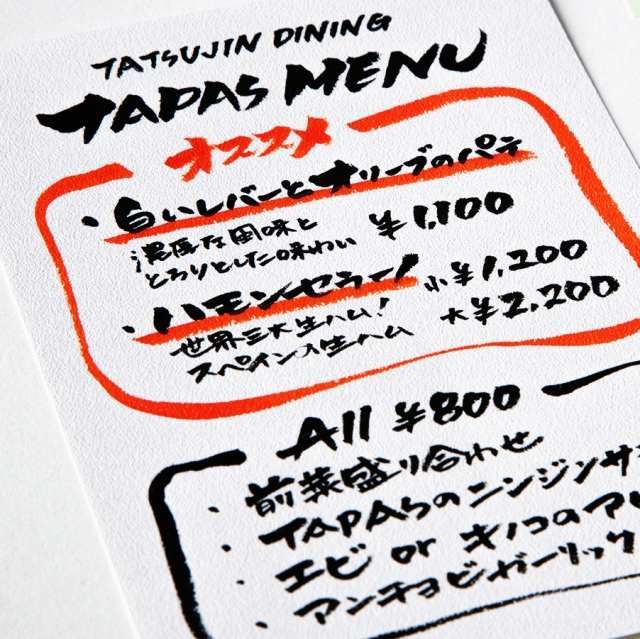 TATSUJIN DINING
TAPAS MENU
オススメ
・白いレバーとオリーブのパテ
濃厚な風味と
とろりとした味わい
¥1,100
・ハモンセラーノ
小¥1,200
世界三大生ハム!
大¥2,200
スペインの生ハム
All ¥800
・前菜盛り合わせ
・TAPAsのニンジンサ
・エビ or キノコのア
・アンチョビガーリック